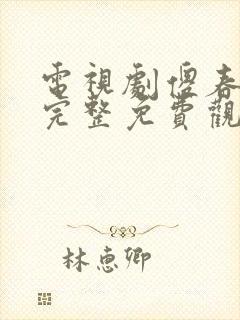 電視劇傻春
完整免費觀
林惠卿